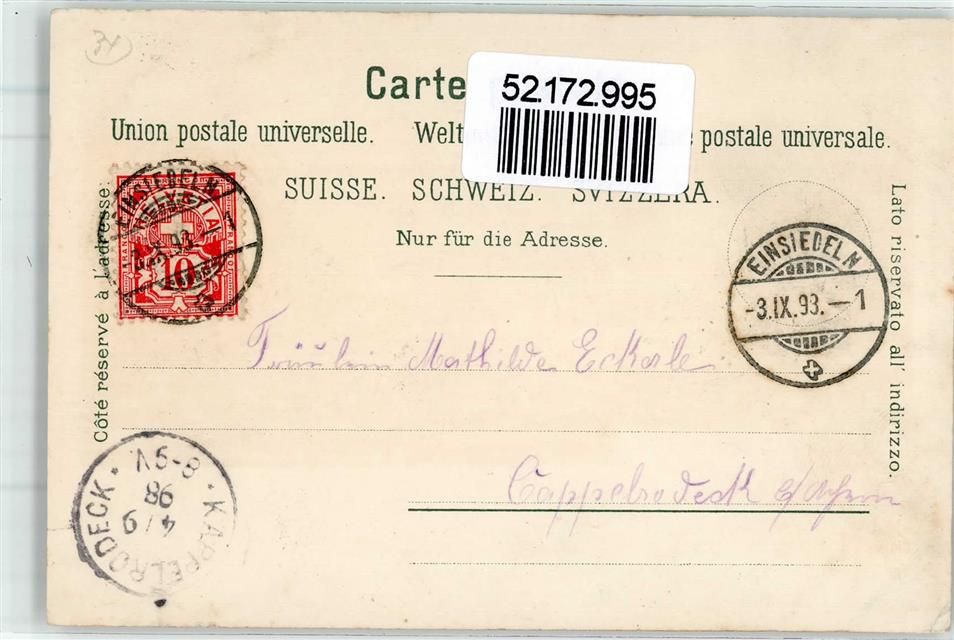 34
Carte
52.172.995
Union postale universelle. Welt postale universale.
SUISSE. SCHWEIZ. SVIZZERA.
Nur für die Adresse.
Côté réservé à l'adresse.
Lato riservato all' indirizzo.
EINSIEDELN
HELVETIA
10
EINSIEDELN
-3.IX.93.-1
Fräulein Mathilde Eckerle
Cappelrodeck
KAPPELRODECK
4/9
98
8-9V.